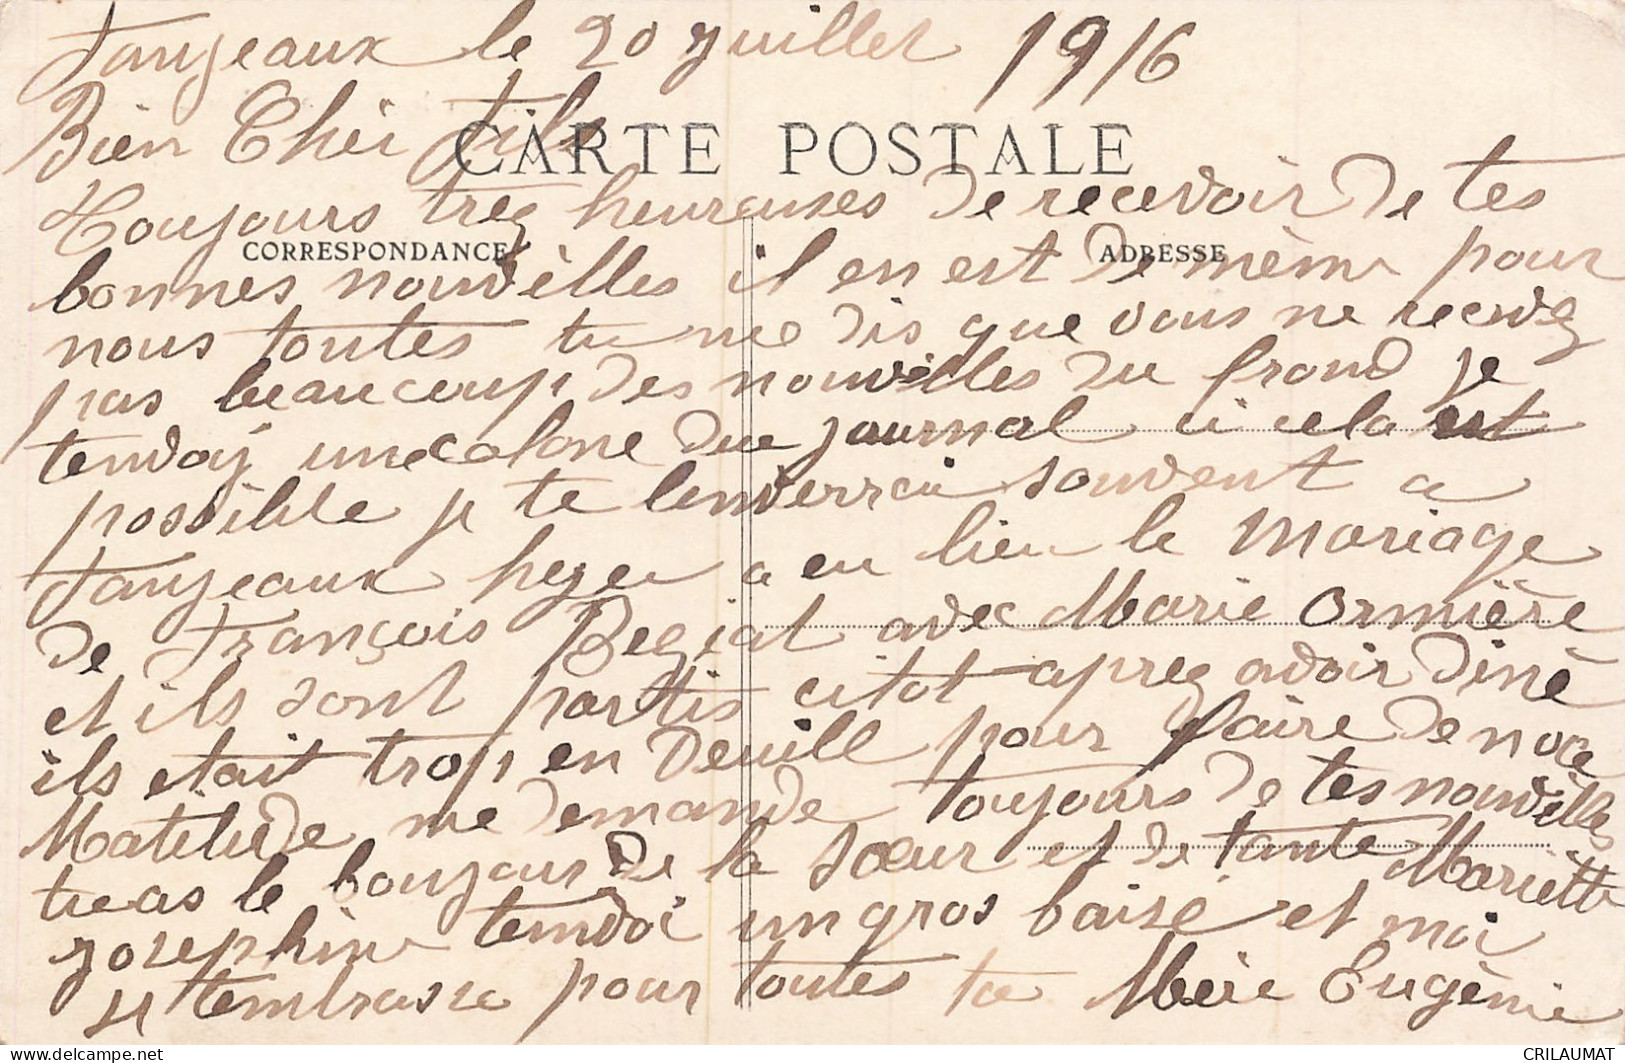 Fanjeaux le 20 Juillet 1916
Bien Cher fils
CARTE POSTALE
Toujours tres heureuses de recevoir de tes
CORRESPONDANCE
ADRESSE
bonnes nouvèlles il en est de mème pour
nous toutes tu me dis que vous ne recevez
pas beaucoup des nouvelles du frond je
tendoy une colone du journal ci cela est
possible je te lenverrai souvent a
Fanjeaux hyer a eu lieu le Mariage
de François Begiat avec Marie Ormière
et ils sont partis citot apres avoir diné
ils etait trop en deuill pour faire de noce
Matelide me demande toujours de tes nouvèlles
tu as le boujour de la sœur et de tante Mariette
Josephine tendoi un gros baisé et moi
je tembrasse pour toutes ta Mère Eugènie
CRILAUMAT